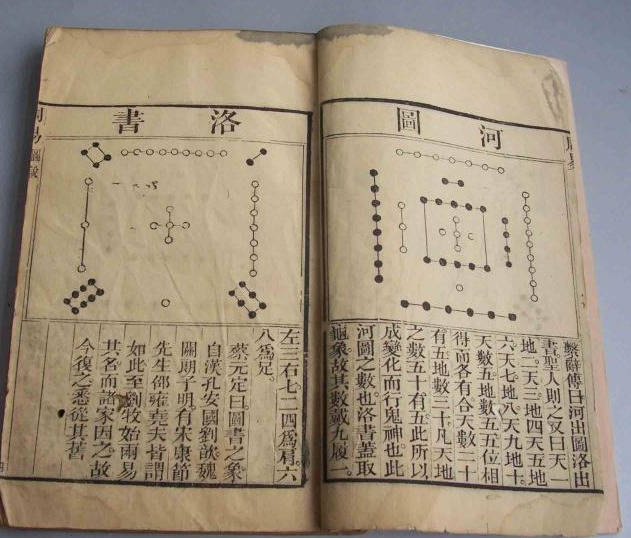 河圖
繫辭傳曰河出圖洛出
書聖人則之又曰天一
地二。天三。地四天五地
六天七地八天九地十
天數五。地數五五位相
得而各有合天數二十
有五地數三十凡天地
之數五十有五此所以
成變化而行鬼神也此
河圖之數也洛書蓋取
龜象故其數戴九履一。
洛書
左三右七二四爲肩。六
八爲足。
蔡元定曰圖書之象
自漢孔安國劉歆魏
關朗子明有宋康節
先生邵雍堯夫皆謂
如此至劉牧始兩易
其名而諸家因之故
今復之悉從其舊